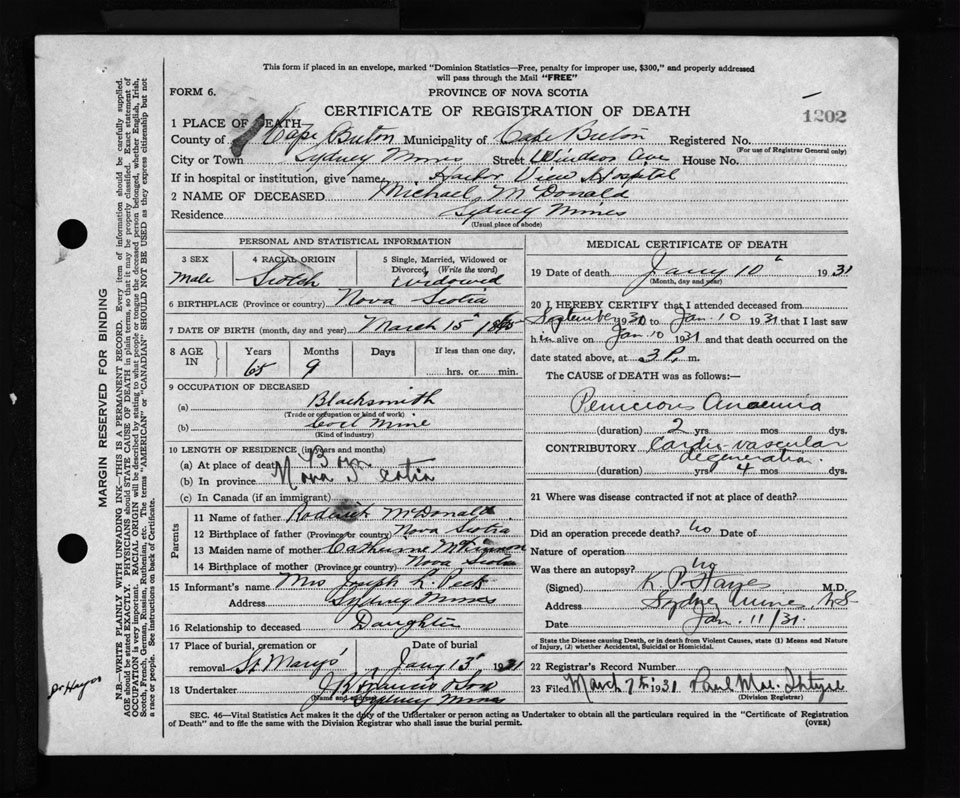 This form if placed in an envelope, marked "Dominion Statistics—Free, penalty for improper use, $300," and properly addressed
will pass through the Mail "FREE"
FORM 6. PROVINCE OF NOVA SCOTIA
CERTIFICATE OF REGISTRATION OF DEATH 1202
1 PLACE OF DEATH—
County of Cape Breton Municipality of Cape Breton Registered No.
(For use of Registrar General only)
City or Town Sydney Mines Street Windsor Ave House No.
If in hospital or institution, give name Harbor View Hospital
2 NAME OF DECEASED Michael McDonald
Residence Sydney Mines
(Usual place of abode)
PERSONAL AND STATISTICAL INFORMATION
3 SEX 4 RACIAL ORIGIN 5 Single, Married, Widowed or
Divorced, (Write the word)
Male Scotch Widowed
6 BIRTHPLACE (Province or country) Nova Scotia
7 DATE OF BIRTH (month, day and year) March 15" 1865
8 AGE IN Years Months Days If less than one day,
65 9 hrs. or min.
9 OCCUPATION OF DECEASED
(a) Blacksmith
(Trade or occupation or kind of work)
(b) Coal Mine
(Kind of industry)
10 LENGTH OF RESIDENCE (in years and months)
(a) At place of death
(b) In province Nova Scotia
(c) In Canada (if an immigrant)
Parents
11 Name of father Roderick McDonald
12 Birthplace of father (Province or country) Nova Scotia
13 Maiden name of mother Catherine McKinnon
14 Birthplace of mother (Province or country) Nova Scotia
15 Informant's name Mrs Joseph L. Peck
Address Sydney Mines
16 Relationship to deceased Daughter
17 Place of burial, cremation or Date of burial
removal St Mary's Jany 13" 1931
18 Undertaker
(Name and address)
Sydney Mines
MEDICAL CERTIFICATE OF DEATH
19 Date of death Jany 10" 1931
(Month, day and year)
20 I HEREBY CERTIFY that I attended deceased from
September 1930 to Jan. 10 1931 that I last saw
him alive on Jan 10 1931 and that death occurred on the
date stated above, at 3 P. m.
The CAUSE of DEATH was as follows:—
Pernicious Anaemia
(duration) 2 yrs. mos. dys.
CONTRIBUTORY Cardio-vascular
degeneration.
(duration) yrs. 4 mos dys.
21 Where was disease contracted if not at place of death?
Did an operation precede death? no Date of
Nature of operation
Was there an autopsy? no
(Signed) K P Hayes M.D.
Address Sydney Mines N.S.
Date Jan. 11/31.
State the Disease causing Death, or in death from Violent Causes, state (1) Means and Nature
of Injury, (2) whether Accidental, Suicidal or Homicidal.
22 Registrar's Record Number
23 Filed March 7th 1931 Paul
(Division Registrar)
SEC. 46—Vital Statistics Act makes it the duty of the Undertaker or person acting as Undertaker to obtain all the particulars required in the "Certificate of Registration
of Death" and to file the same with the Division Registrar who shall issue the burial permit. (OVER)
MARGIN RESERVED FOR BINDING
N.B.—WRITE PLAINLY WITH UNFADING INK—THIS IS A PERMANENT RECORD. Every item of information should be carefully supplied.
AGE should be stated EXACTLY. PHYSICIANS should STATE CAUSE OF DEATH in plain terms, so that it may be properly classified. Exact statement of
OCCUPATION is very important. RACIAL ORIGIN will be described by stating to what people or tongue the deceased person belonged, whether English, Irish,
Scotch, French, German, Russian, Ruthenian, etc. The terms "AMERICAN" or "CANADIAN" SHOULD NOT BE USED as they express citizenship but not
a race or people. See instructions on back of Certificate.
Dr Hayes